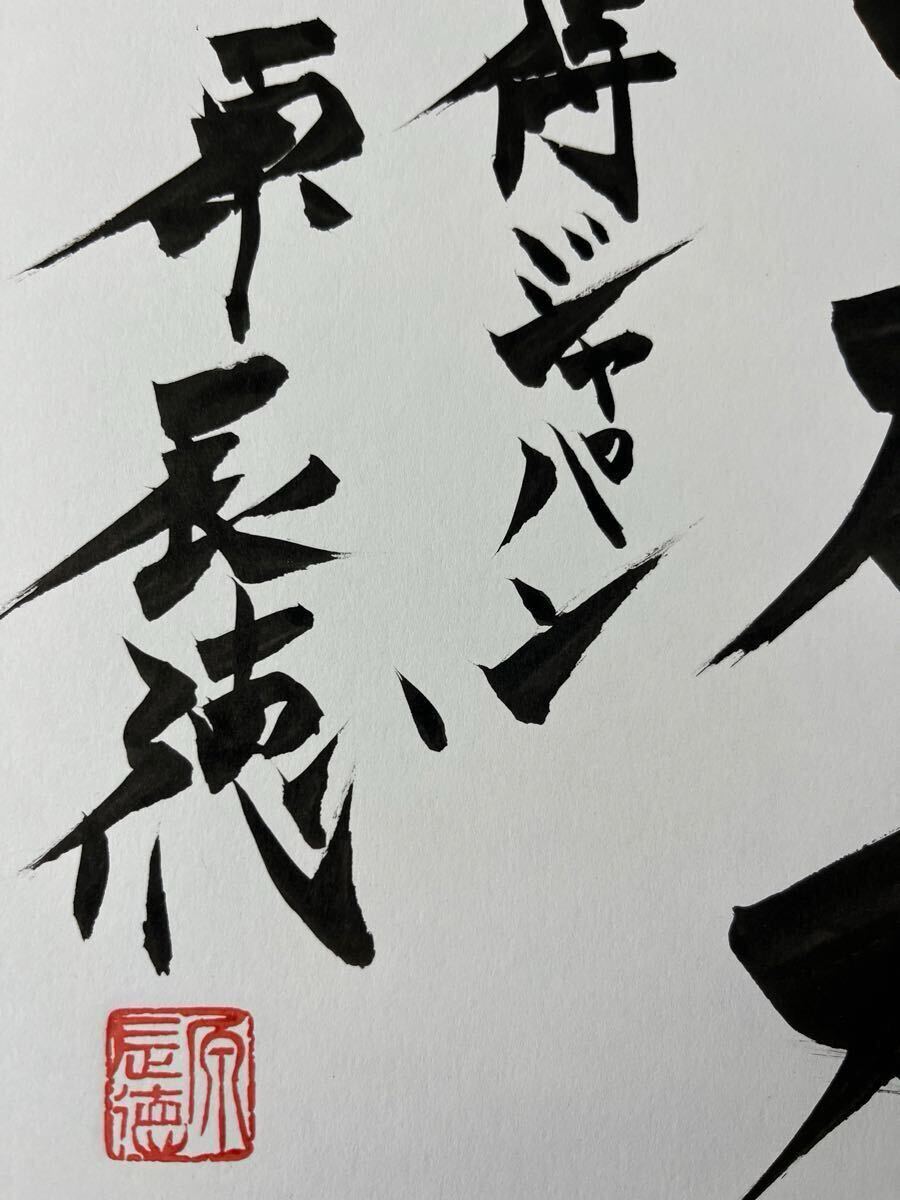 侍ジャパン
原辰徳
原
辰徳